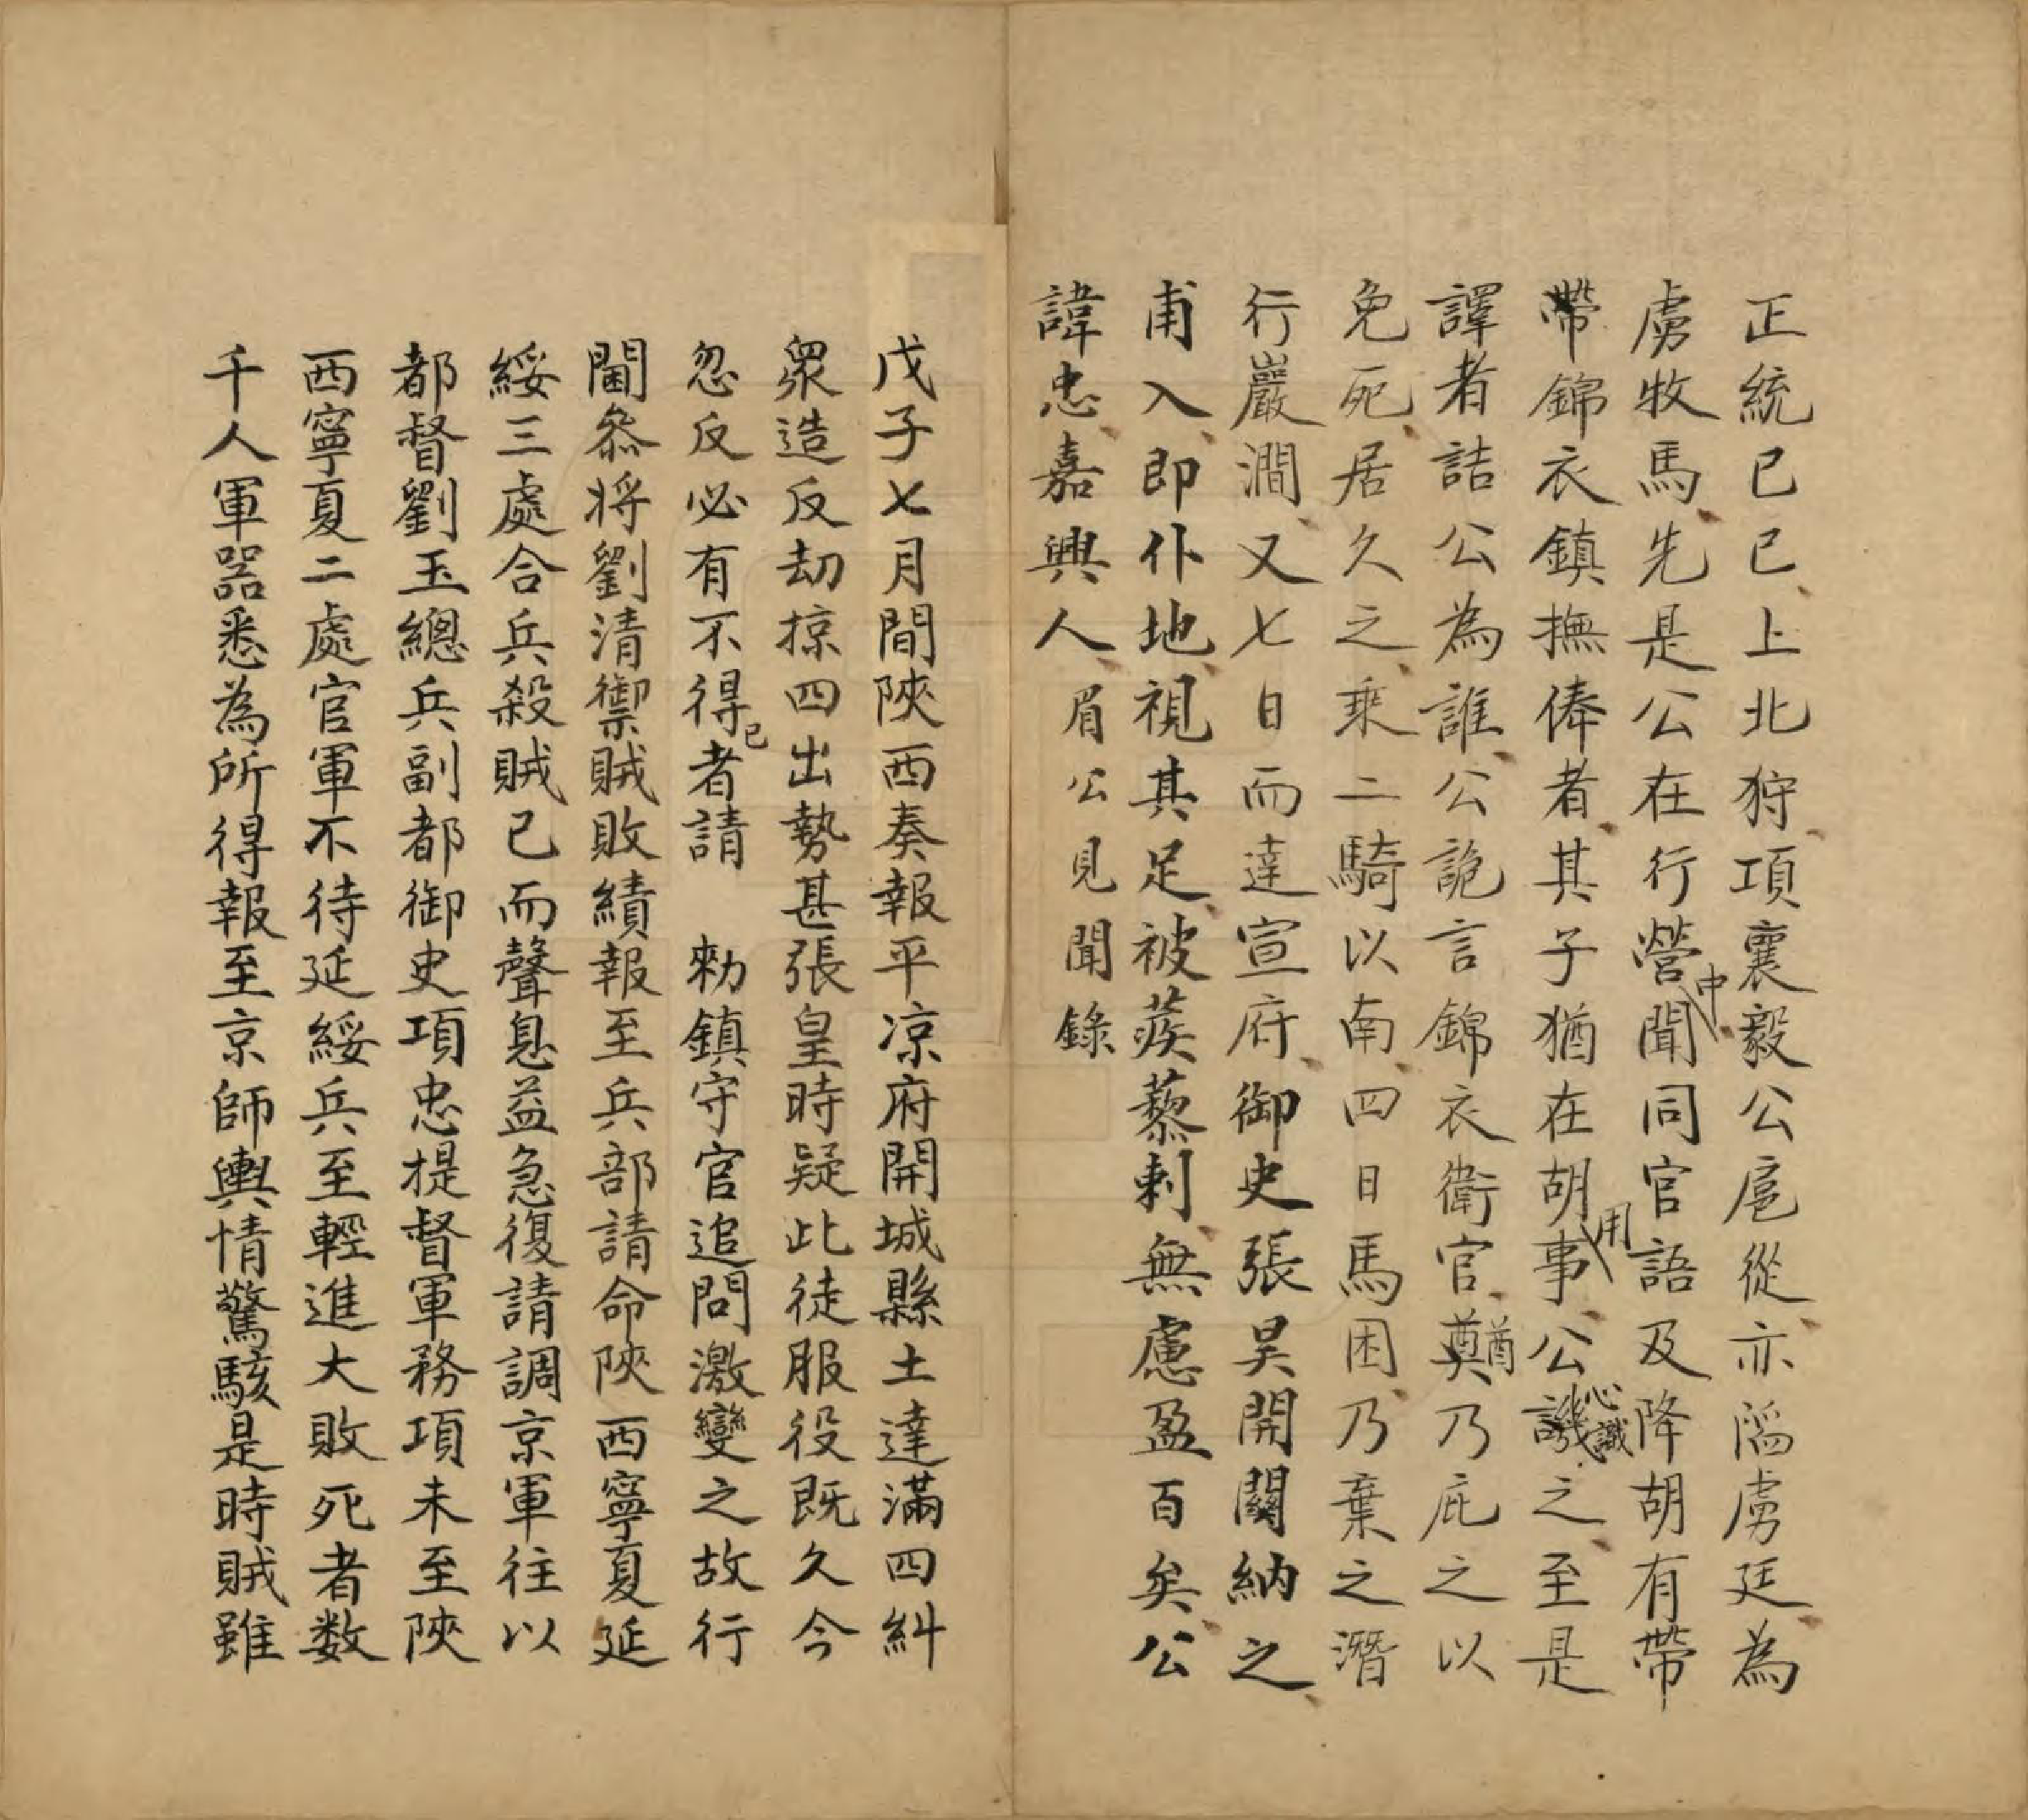 正統已巳上北狩項襄毅公扈從亦陷虜廷為
虜牧馬先是公在行營中聞同官語及降胡有帶
帶錦衣鎮撫俸者其子猶在胡用事公譏心識之至是
譯者詰公為誰公詭言錦衣衛官奠酋乃庇之以
免死居久之乘二騎以南四日馬困乃棄之潛
行巖澗又七日而達宣府御史張昊開關納之
甫入即仆地視其足被蒺藜刺無慮盈百矣公
諱忠嘉興人眉公見聞錄
戊子七月間陝西奏報平凉府開城縣土達滿四糾
眾造反劫掠四出勢甚張皇時疑此徒服役既久今
忽反必有不得已者請 勑鎮守官追問激變之故行
閫叅将劉清禦賊敗績報至兵部請命陝西寧夏延
綏三處合兵殺賊已而聲息益急復請調京軍往以
都督劉玉總兵副都御史項忠提督軍務項未至陝
西寧夏二處官軍不待延綏兵至輕進大敗死者数
千人軍噐悉為所得報至京師輿情驚駭是時賊雖